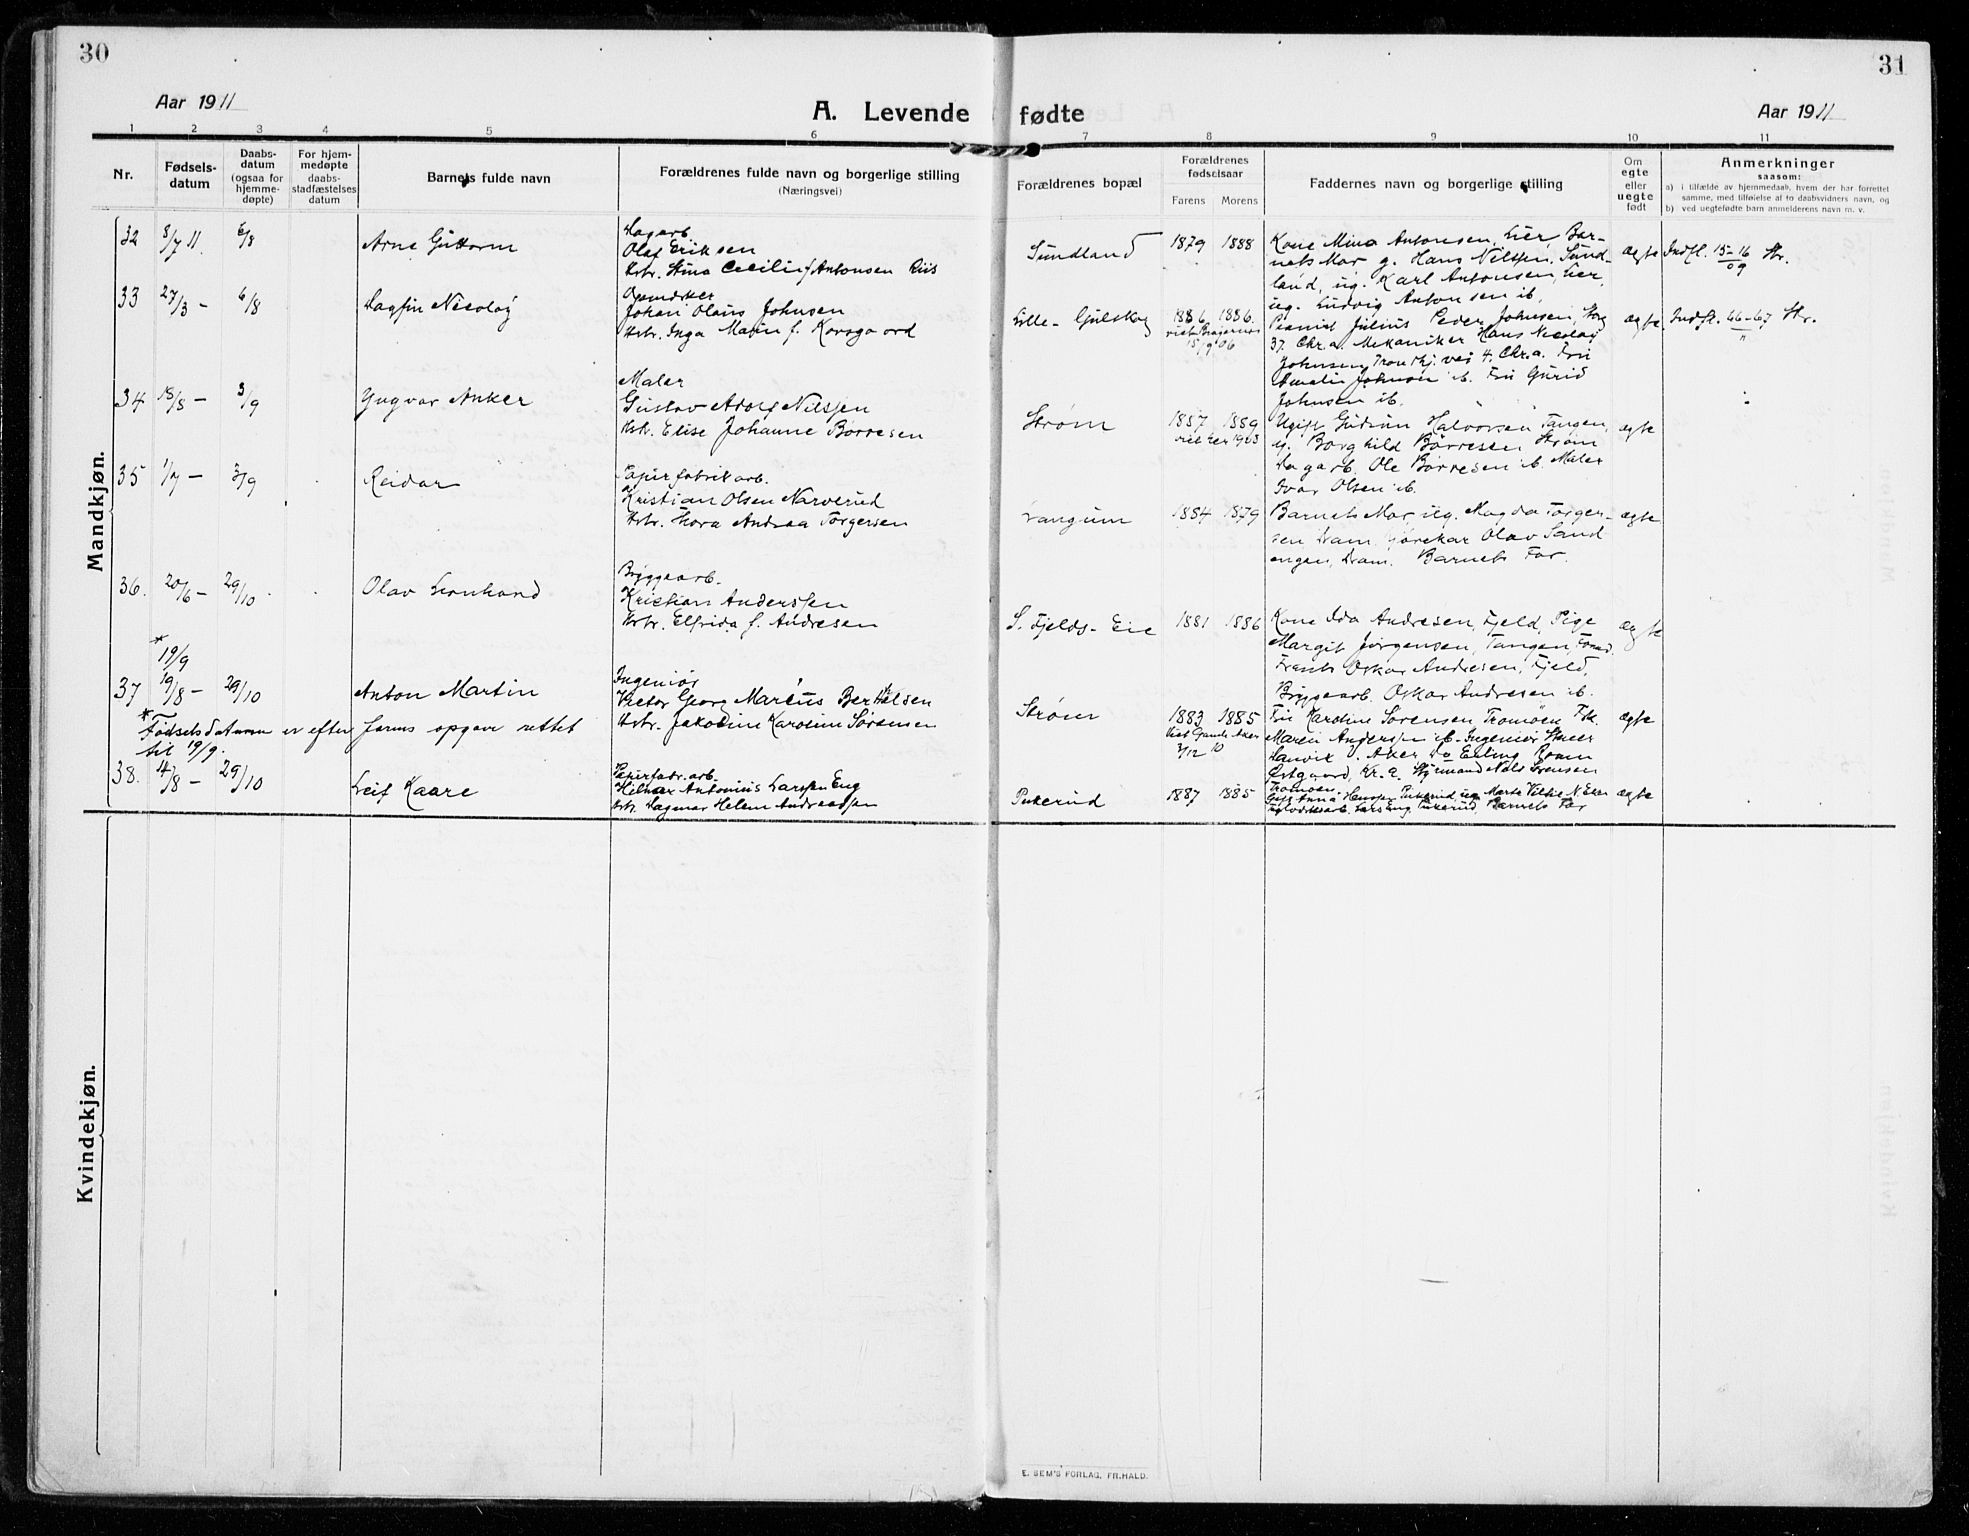 30
31
Aar 1911
A. Levende fødte
Aar 1911
1 2 3 4 5 6 7 8 9 10 11
Nr.
Fødsels-
datum
Daabs-
datum
(ogsaa for
hjemme-
døpte)
For hjem-
medøpte
daabs-
stadfæstelses
datum
Barnets fulde navn
Forældrenes fulde navn og borgerlige stilling
(Næringsvei)
Forældrenes bopæl
Forældrenes
fødselsaar
Farens Morens
Faddernes navn og borgerlige stilling
Om
egte
eller
uegte
født
Anmerkninger
saasom:
a) i tilfælde av hjemmedaab, hvem der har forrettet
samme, med tilføielse af to daabsvidners navn, og
b) ved uegtefødte barn anmelderens navn m. v.
Mandkjøn.
32 8/7 11. 6/8 Arne Guttorm
Dagarb.
Olaf Eriksen
Hstr. Stina Cecilie f. Antonsen Riis
Sundland 1879 1888
Kone Mina Antonsen, Lier, Bar-
nets Mor, g. Hans Nilssen, Sund-
land, ug. Karl Antonsen, Lier,
ug. Ludvig Antonsen ib.
ægte Indfl. 15-16/09 Str.
33 27/3 — 6/8 Dagfin Nicolay
Johan Olaus Johnsen
Hstr. Inga Marin f. Korsgaord
Lille-Gulskog 1886 1886.
viet Bragernes
15/9 06
Pianist Julius Peder Johnsen, Storg
37. Chr.a. Mekaniker Hans Nicolay
Johnsen, Trondhj. vei 4. Chr.a. Fru
Amalie Johnsen ib. Fru Gurid
Johnsen ib.
ægte Indfl. 66-67 Str.
34 18/8 — 3/9 Yngvar Anker
Maler
Gustav Adolf Nilssen
Hstr. Elise Johanne Børresen
Strøm 1887 1889
viet her 1903
Ugift Gudrun Halvorsen Tangen,
ug. Borghild Børresen Strøm
Dagarb. Ole Børresen ib. Maler
Ivar Olsen ib.
ægte
35 1/7 — 3/9 Reidar
Papirfabrikarb.
Kristian Olsen Narverud
Hstr. Thora Andrea Torgersen
Langum 1884 1879
Barnets Mor, ug. Magda Torger-
sen Dram. Olav Sand
engen, Dram. Barnets Far.
ægte
36. 20/6 — 29/10 Olav Leonhard
* 19/9
Bryggearb.
Kristian Anderssen
Hstr. Elfrida f. Andresen
S. Fjelds-Eie 1881 1886
Kone Ida Andresen, Fjeld, Pige
Margit Jørgensen, Tangen,
Oskar Andresen, Fjeld,
Bryggearb. Oskar Andresen ib.
ægte
37 19/8 — 29/10 Anton Martin
Ingeniør
Victor Georg Marcus Berthelsen
Hstr. Jakobine Karoline Sørensen
Strøm 1883 1885
Viet Gamle Aker
3/12 10
Fru Karoline Sørensen Tromøen, Frk.
Maren Anderssen ib. Ingeniør
Larvik, V. Aker, Do Erling Roam
Østgaard, Kr.a. Styrmand Nils Sørensen
Tromøen.
ægte
* Fødselsdatum er efter Farens opgave rettet
til 19/9.
38. 14/8 — 29/10 Leif Kaare
Papirfabr.arb.
Hilmar Antonius Larssen Eng
Hstr. Dagmar Helene Andreassen
Pukerud 1887 1885
Gift Anna Hanssen Pukerud, ug. Marte N. Eker
Lars Eng, Pukerud, Barnets Far
ægte
Kvindekjøn.
E. SEM'S FORLAG, FR.HALD.